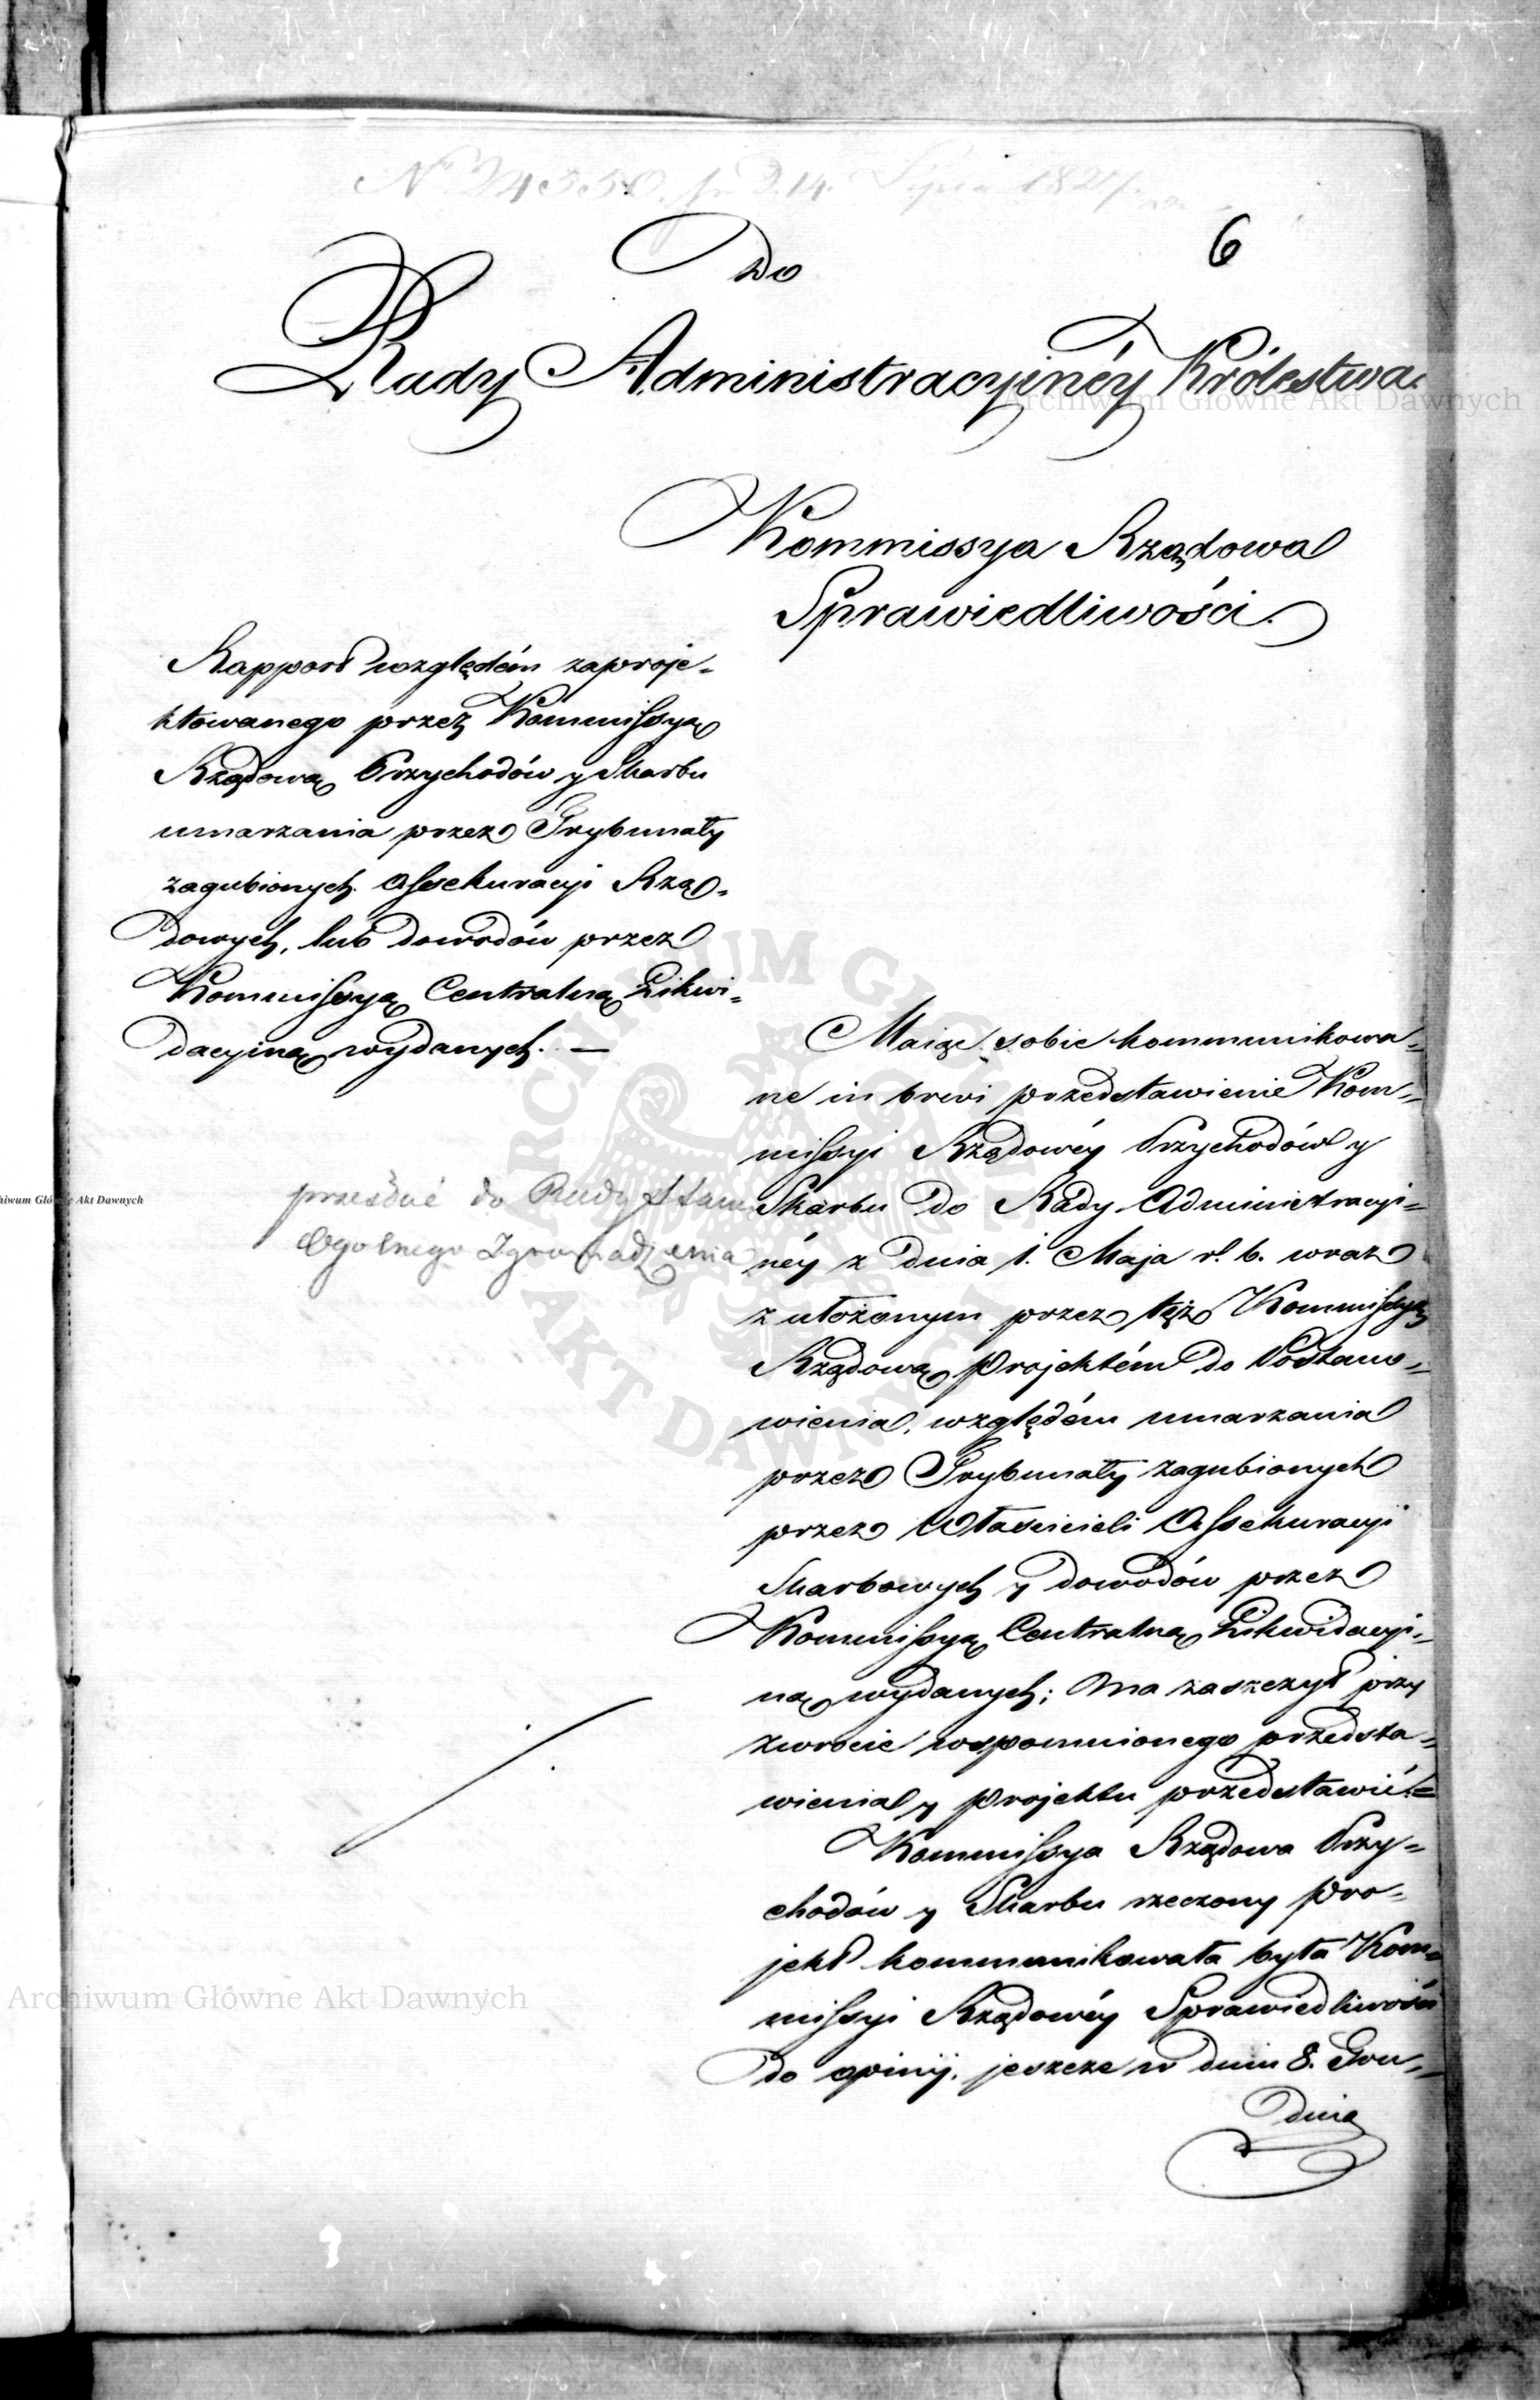 6
Do
Rady Administracyinéy Królestwa.
Kommissya Rządowa
Sprawiedliwości.
Rapport względém zaproje-
ktowanego przez Kommissyą
Rządową Przychodów y Skarbu
umarzania przez Trybunały
zagubionych Assekuracyi Rzą-
dowych, lub dowodów przez
Kommissyą Centralną Likwi-
dacyiną wydanych. —
przesłać do Rady Stanu
Ogolnego Zgromadzenia
Maiąc sobie kommunikowa-
ne in brevi przedstawienie Kom-
missyi Rządowéy Przychodów y
Skarbu do Rady Administracyi-
néy z dnia 1. Maja r. b. wraz
z ułożonym przez tęż Kommissyą
Rządową Projektém do Postano-
wienia, względém umarzania
przez Trybunały zagubionych
przez Właścicieli Assekuracyi
Skarbowych y dowodów przez
Kommissyą Centralną Likwidacyi-
ną wydanych; ma zaszczyt przy
zwrocie wspomnionego przedsta-
wienia y Projektu przedstawić:
Kommissya Rządowa Przy-
chodów y Skarbu rzeczony Pro-
jekt kommunikowała była Kom-
missyi Rządowéy Sprawiedliwości
do opinij, jeszcze w dniu 8. Gru-
dnia
Archiwum Główne Akt Dawnych
Archiwum Główne Akt Dawnych
ARCHIWUM GŁÓWNE AKT DAWNYCH